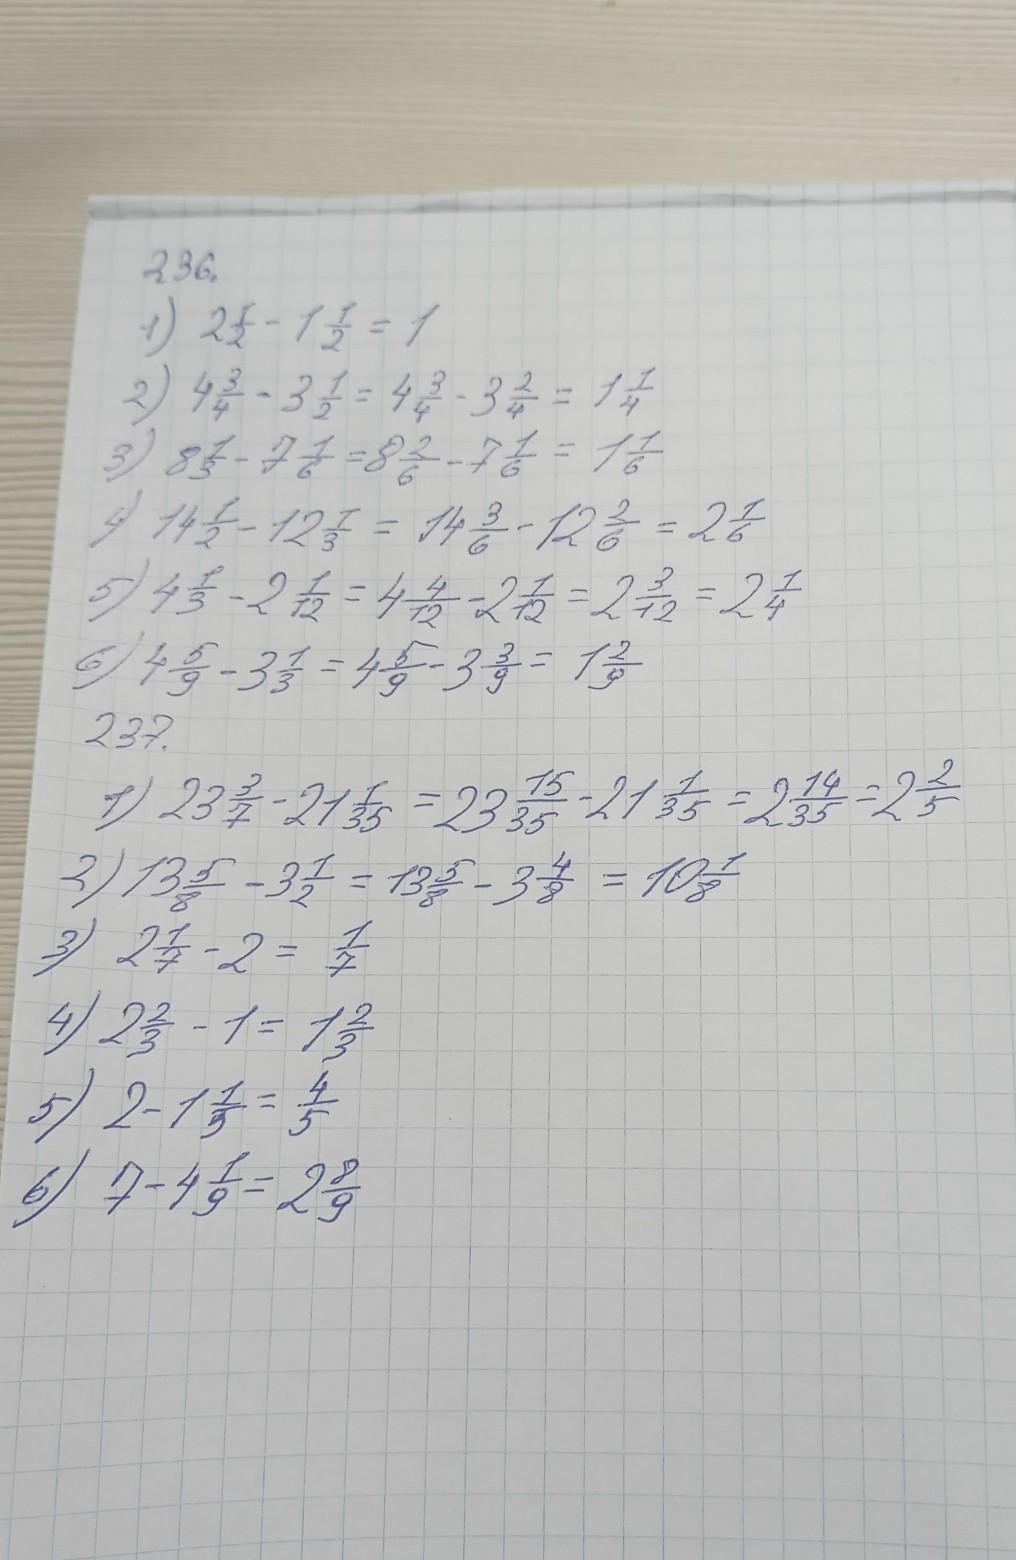 236.
1) 2 1/2 - 1 1/2 = 1
2) 4 3/4 - 3 1/2 = 4 3/4 - 3 2/4 = 1 1/4
3) 8 1/3 - 7 1/6 = 8 2/6 - 7 1/6 = 1 1/6
4) 14 1/2 - 12 1/3 = 14 3/6 - 12 2/6 = 2 1/6
5) 4 1/3 - 2 1/12 = 4 4/12 - 2 1/12 = 2 3/12 = 2 1/4
6) 4 5/9 - 3 1/3 = 4 5/9 - 3 3/9 = 1 2/9
237.
1) 23 3/7 - 21 1/35 = 23 15/35 - 21 1/35 = 2 14/35 = 2 2/5
2) 13 5/8 - 3 1/2 = 13 5/8 - 3 4/8 = 10 1/8
3) 2 1/7 - 2 = 1/7
4) 2 2/3 - 1 = 1 2/3
5) 2 - 1 1/5 = 4/5
6) 7 - 4 1/9 = 2 8/9